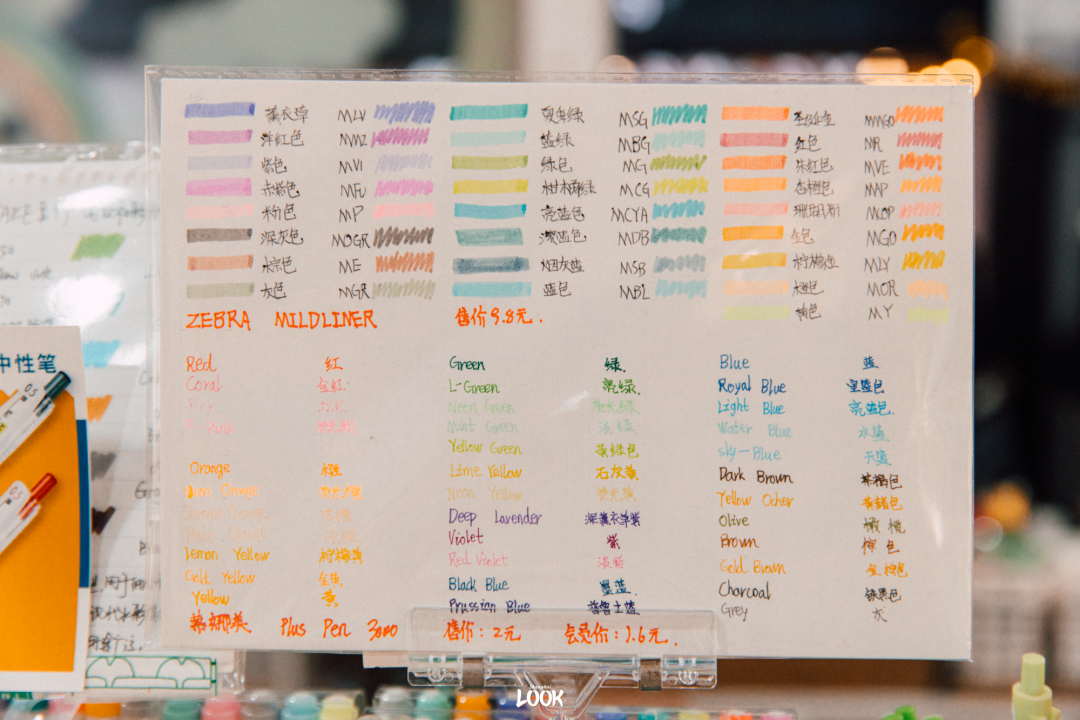 薰衣草 MLV
洋红色 MMZ
紫色 MVI
MFU
粉色 MP
深灰色 MOGR
棕色 ME
灰色 MGR
MSG
蓝绿 MBG
绿色 MG
柑橘绿 MCG
亮蓝色 MCYA
深蓝色 MDB
烟灰蓝 MSB
蓝色 MBL
MMGO
红色 MR
朱红色 MVE
杏橙色 MAP
MCOP
金色 MGO
柠檬 MLY
橙色 MOR
黄色 MY
ZEBRA MILDLINER 售价9.8元.
Red 红
Coral 金红
Orange 橙
Orange
Lemon Yellow 柠檬黄
Gold Yellow 金黄
Yellow 黄
Green 绿.
L-Green 亮绿.
Neon Green 荧光绿
Mint Green 淡绿
Yellow Green 黄绿色
Lime Yellow 石灰黄
Neon Yellow 荧光黄
Deep Lavender 深薰衣草紫
Violet 紫
Red Violet 淡紫
Black Blue 墨蓝
Prussian Blue 普鲁士蓝
Blue 蓝
Royal Blue 皇蓝色
Light Blue 亮蓝色.
Water Blue 水蓝
sky-Blue 天蓝
Dark Brown 茶褐色
Yellow Ocher 黄赭色
Olive 橄榄
Brown 棕色
Gold Brown 金棕色
Charcoal 铁黑色
Grey 灰
慕娜美 Plus Pen 3000 售价:2元 会员价:1.6元.
中性笔
0.5
0.5
LOOK